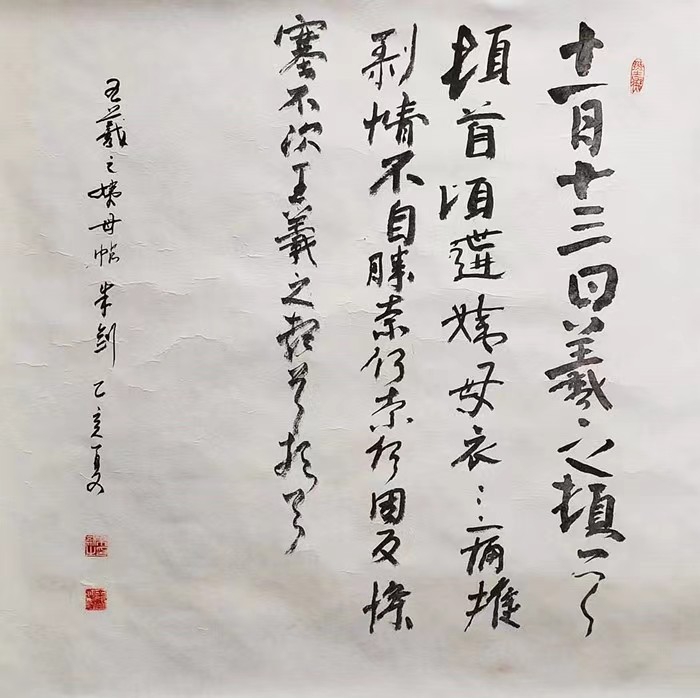 十一月十三日羲之頓首
頓首頃遘姨母哀哀痛摧
剥情不自勝奈何奈何因反慘
塞不次王羲之頓首頓首
王羲之姨母帖朱剑乙亥夏